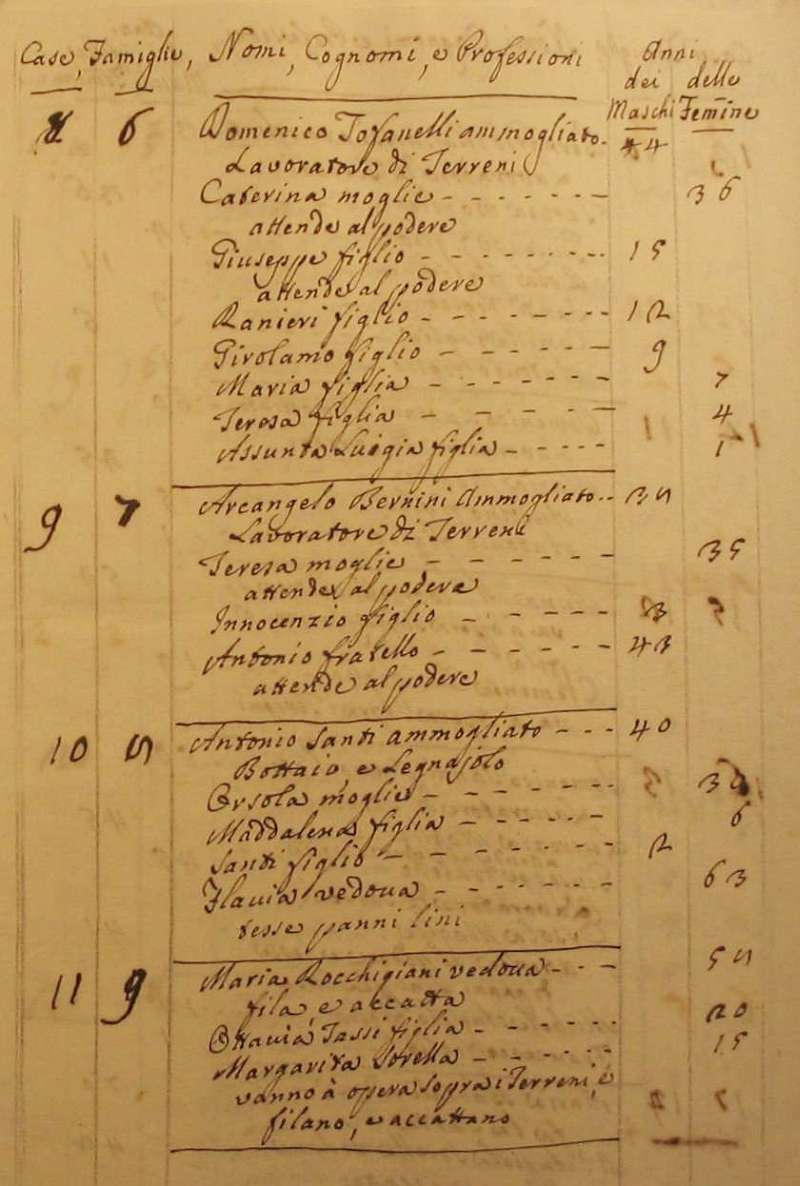 Case, Famiglie, Nomi, Cognomi, e Professioni Anni
dei delle
Maschi Femine
8 6 Domenico Tofanelli ammogliato 44
Lavoratore di Terreni
Caterina moglie 36
attende al podere
Giuseppe figlio 15
attende al podere
Ranieri figlio 12
Girolamo figlio 9
Maria figlia 7
Teresa figlia 4
Assunta Luigia figlia 1
9 7 Arcangelo Bernini Ammogliato 35
Lavoratore di Terreni
Teresa moglie 35
attende al podere
Innocenzio figlio 3
Antonio fratello 43
attende al podere
10 5 Antonio Santi ammogliato 40
Bottaio, e Legnajolo
Orsola moglie
Maddalena figlia 6
Santi figlio 2
Flavia vedova 63
tesse panni lini
11 9 Maria Rocchigiani vedova 55
fila, e accatta
Ottavia Tassi figlia 20
Margarita Sorella 15
vanno à opera sopra i Terreni, e
filano, e accattano